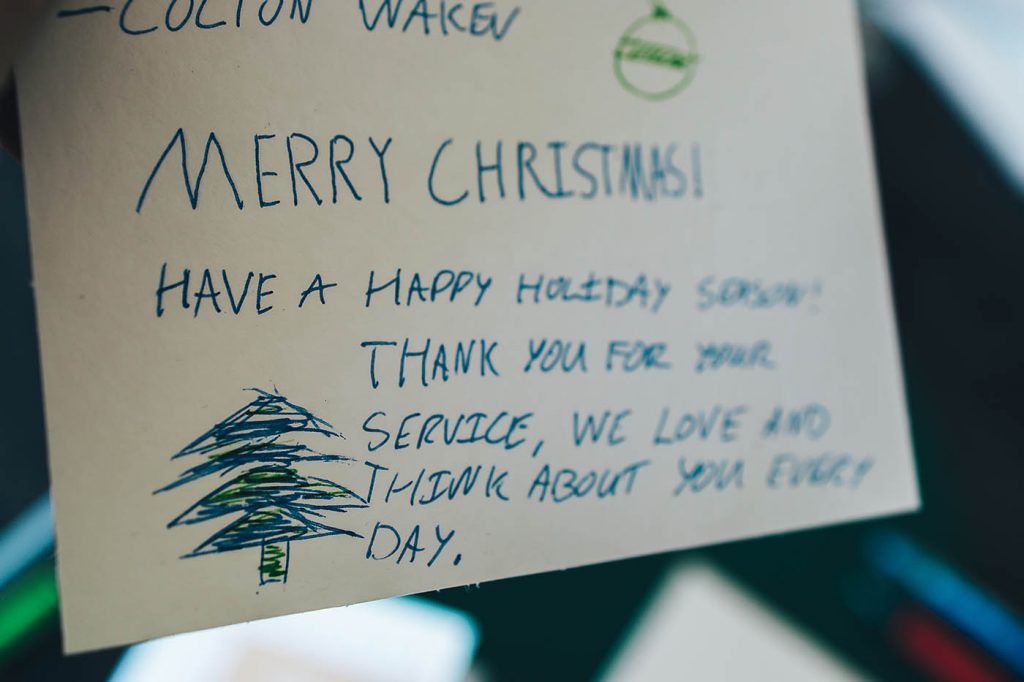 —COLTON WAKEN
MERRY CHRISTMAS!
HAVE A HAPPY HOLIDAY SEASON!
THANK YOU FOR YOUR
SERVICE, WE LOVE AND
THINK ABOUT YOU EVERY
DAY.